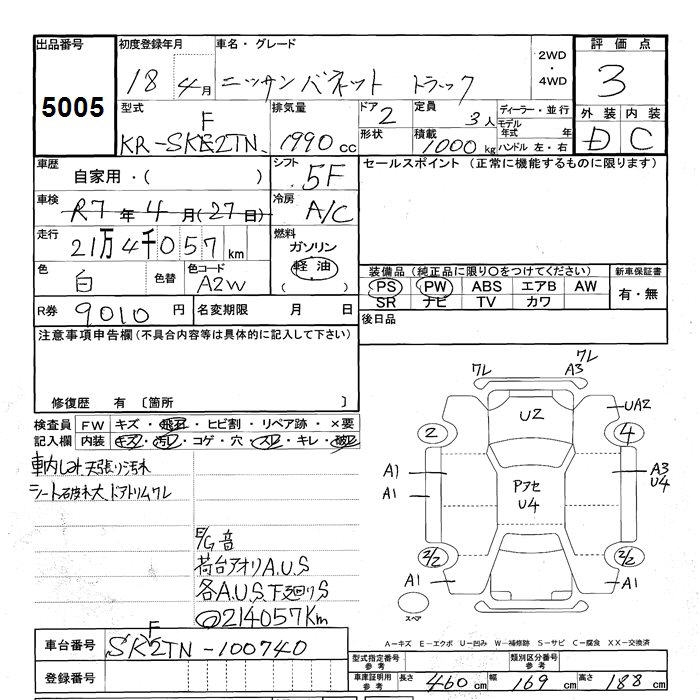 出品番号 初度登録年月 車名・グレード 2WD ・ 4WD 評価点
5005 18年4月 ニッサン バネット トラック 3
型式 排気量 ドア 定員 ディーラー・並行 外装 内装
KR-SKF2TN 1990cc 2 3人 モデル年式 年 D C
形状 積載 1000kg ハンドル 左・右
車歴 自家用・( ) シフト 5F セールスポイント (正常に機能するものに限ります)
車検 R7年4月(27日) 冷房 A/C
走行 21万4千057km 燃料 ガソリン 軽油 ( )
色 白 色替 色コード A2W
装備品(純正品に限り○をつけてください) 新車保証書
PS PW ABS エアB AW 有・無
SR ナビ TV カワ
R券 9010円 名変期限 月 日 後日品
注意事項申告欄(不具合内容等は具体的に記入して下さい)
修復歴 有 〔箇所 〕
検査員 FW キズ・飛石・ヒビ割・リペア跡・×要
記入欄 内装 キズ・汚レ・コゲ・穴・スレ・キレ・破レ
車内しみ 天張り汚れ
シート破れ大 ドアトリムワレ
E/G音
荷台アオリA.U.S
各A.U.S 下廻りS
214057Km
ワレ A3 ワレ
U2 UA2
2 4
A1 A1 Pアセ U4 A3 U4
2/2 2/2
A1 A1
スペア
A-キズ E-エクボ U-凹み W-補修跡 S-サビ C-腐食 XX-交換済
車台番号 SKF2TN-100740
登録番号
型式指定番号 参考 類別区分番号 参考
車庫証明用 参考 長さ 460cm 幅 169cm 高さ 188cm